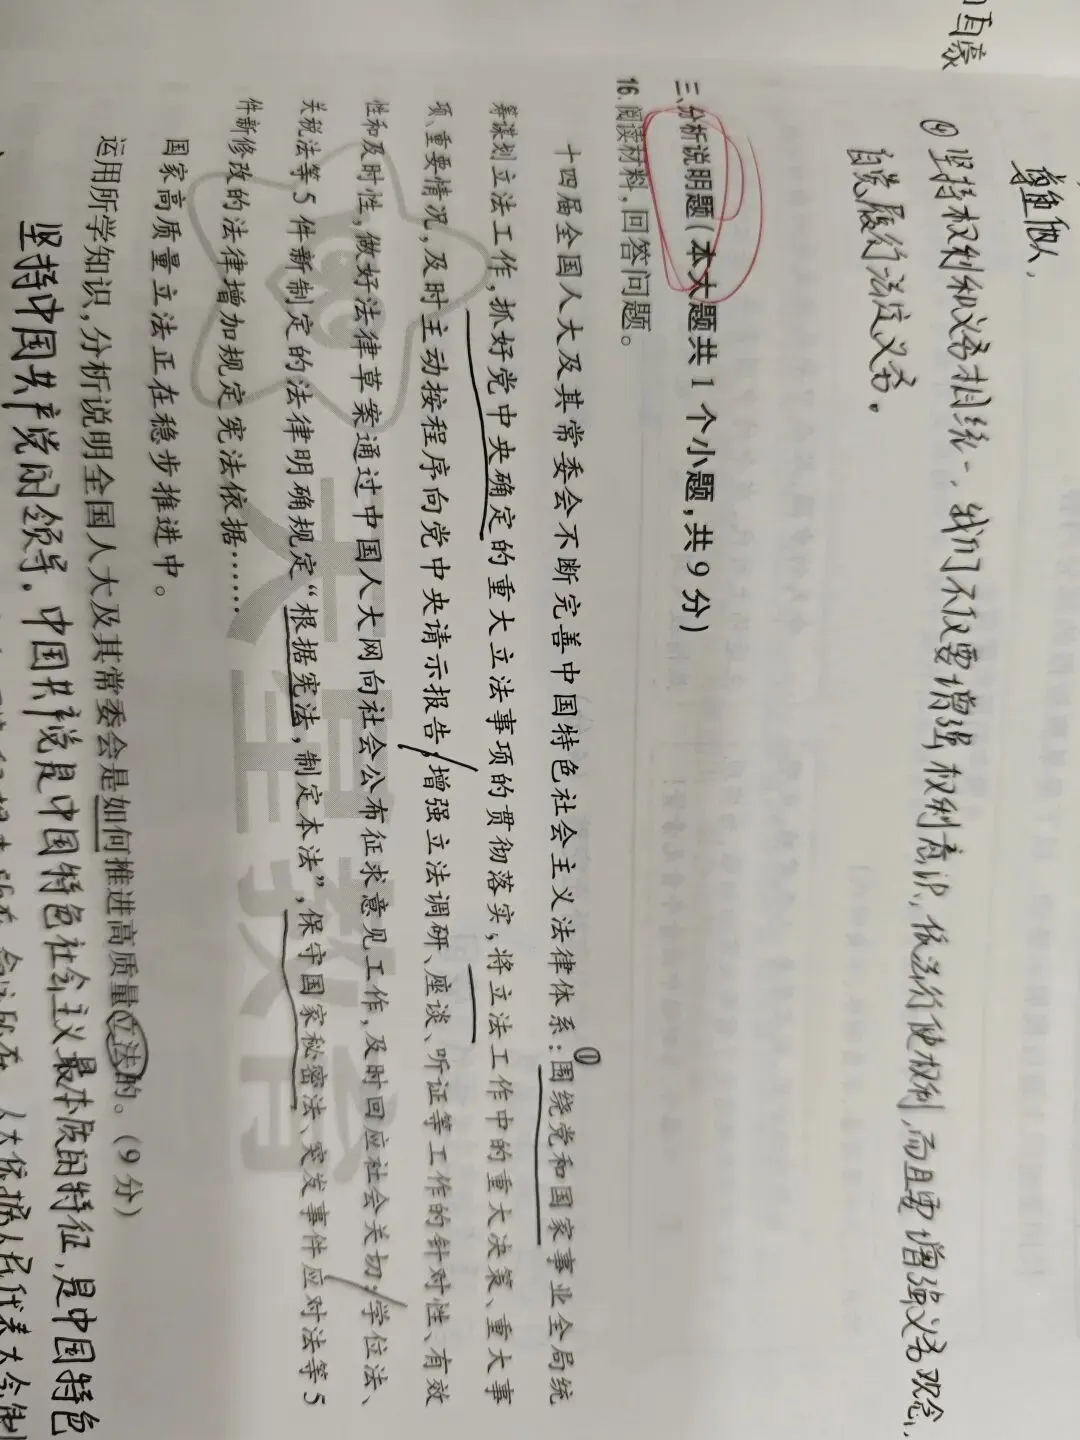 尊重他人,
④坚持权利和义务相统一,我们不仅要增强权利意识,依法行使权利,而且要增强义务观念,
自觉履行法定义务。
三、分析说明题(本大题共1个小题,共9分)
16.阅读材料,回答问题。
十四届全国人大及其常委会不断完善中国特色社会主义法律体系:①围绕党和国家事业全局统
筹谋划立法工作,抓好党中央确定的重大立法事项的贯彻落实,将立法工作中的重大决策、重大事
项、重要情况,及时主动按程序向党中央请示报告;增强立法调研、座谈、听证等工作的针对性、有效
性和及时性,做好法律草案通过中国人大网向社会公布征求意见工作,及时回应社会关切;学位法、
关税法等5件新制定的法律明确规定“根据宪法,制定本法”,保守国家秘密法、突发事件应对法等5
件新修改的法律增加规定宪法依据……
国家高质量立法正在稳步推进中。
运用所学知识,分析说明全国人大及其常委会是如何推进高质量立法的。(9分)
坚持中国共产党的领导。中国共产党是中国特色社会主义最本质的特征,是中国特色
大星教育